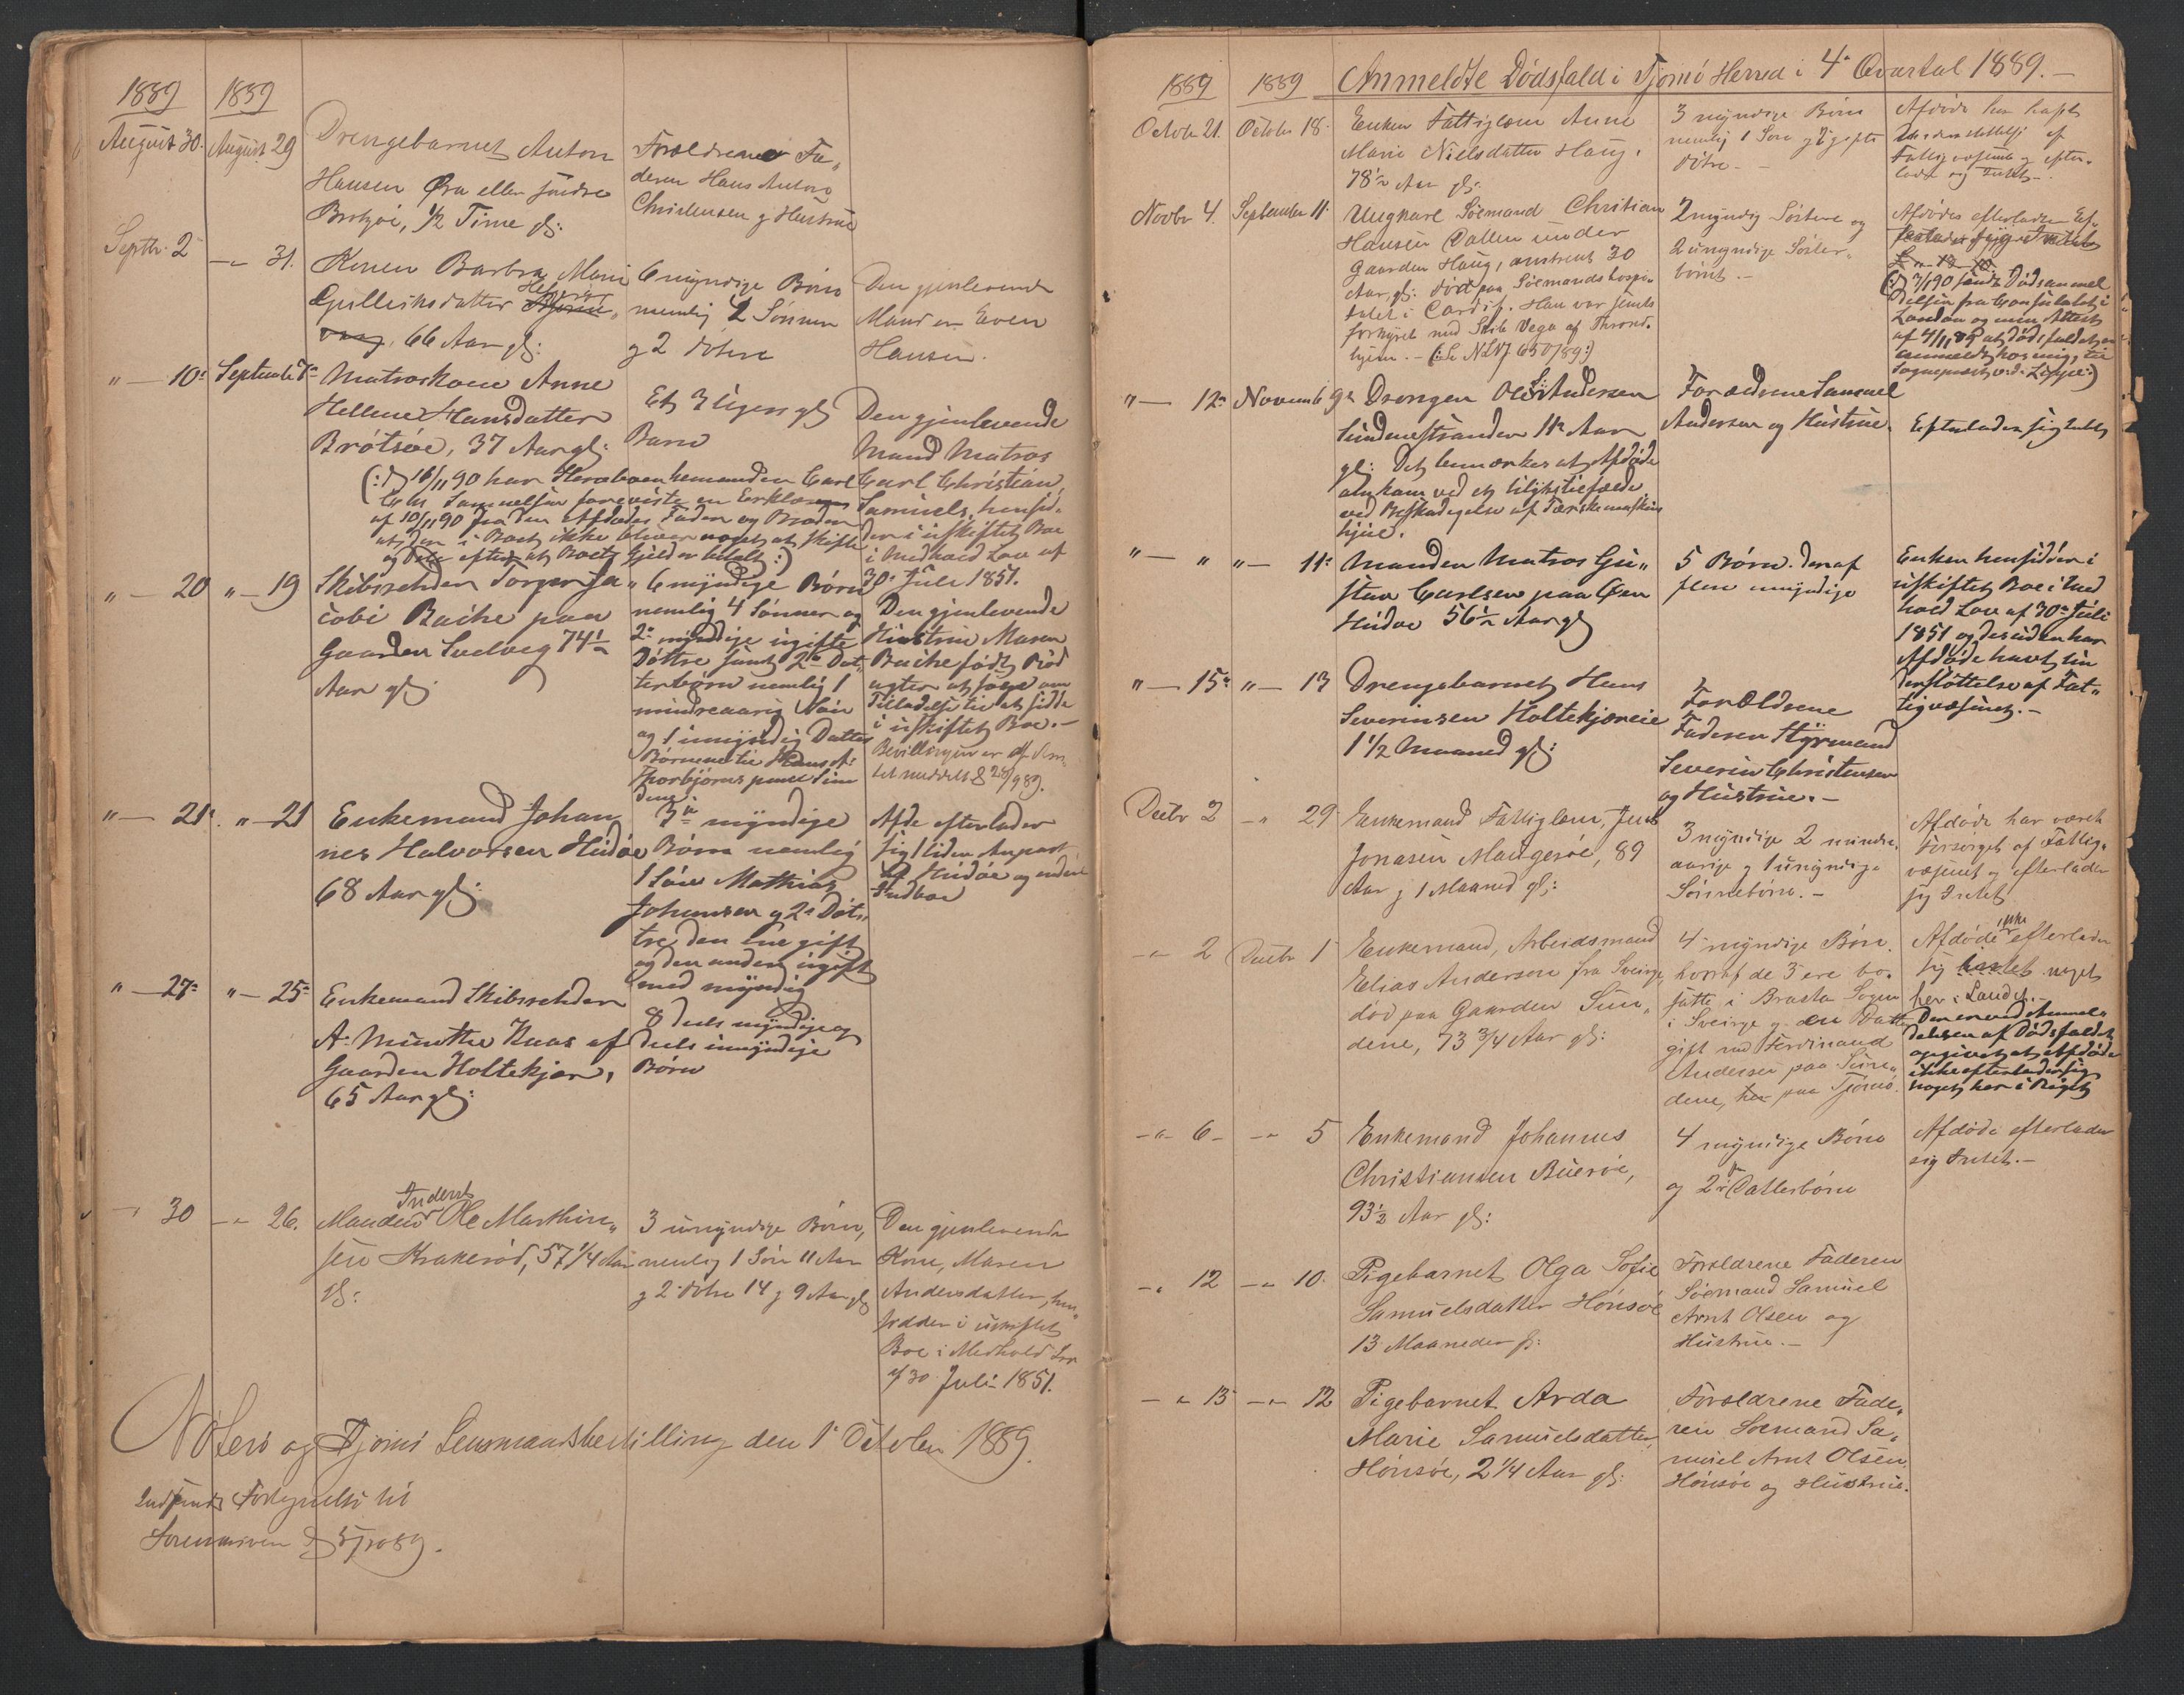 1889 1889
August 30. August 29 Drengebarnet Anton
Hansen Øra eller søndre
Brotsøe, 1/2 Time gl:
Forældrene Fa„
deren Hans Anton
Christensen og Hustrue
Septbr. 2 — " 31. Konen Barbra Marie
Gulleiksdatter
66 Aar gl:
6 myndige Børn
nemlig 4 Sønner
og 2 døtre
Den gjenlevende
Mand er Even
Hansen.
" — 10. Septembr 7. Matroskone Anne
Helene Hansdatter
Brøtsøe, 37 Aar gl:
Et 3 Uger gl
Barn
Den gjenlevende
Mand Matros
Carl Christian
Samuels. hensid„
der i uskiftet Boe
i Medhold Lov af
30 Juli 1851.
(: D 16/11 90 har Heraboenhemanden Carl
Chr. Samuelsen foreviste en Erklæring
af 10/11 90 fra den Afdødes Fader og Brødre
at der i Boet ikke bliver noget at skifte
og dele efter at Boets Gjeld er betalt :)
" — 20 " — 19 Skibsrehder Torger Ja„
cobi Bache paa
Gaarden Svelvig 74 1/2
Aar gl:
6 myndige Børn
nemlig 4 Sønner og
2 myndige ugifte
Døttre samt 2 Dat„
terbørn nemlig 1
mindreaarig Søn
og 1 umyndig Datter
Børnene til Hans A:
Thorbjørns paa Sun
dene.
Den gjenlevende
Hustrue Maren
Bache født Rød
agter at søge om
Tilladelse til at sidde
i uskiftet Boe. —
Bevillingen er af Am„
tet meddelt
" — 21. " — 21 Enkemand Johan
nes Halvorsen Hudøe
68 Aar gl:
3 myndige
Børn nemlig
1 Søn Mathias
Johansen og 2 Døt„
tre den ene gift
og den anden ugift
med myndig
Afde efterlader
sig 1 liden Anpart
Hudøe og endeel
Indboe
" — 27. " — 25. Enkemand Skibsrehder
A. Minothe Kaas af
Gaarden Holtekjær,
65 Aar gl:
8 deels myndige og
deels umyndige
Børn
— " 30 — " 26. Manden Inderst Ole Marthin„
sen Krakerød, 57 1/4 Aar
gl:
3 umyndige Børn,
nemlig 1 Søn 11 Aar
og 2 døtre 14 og 9 Aar gl
Den gjenlevende
Kone, Maren
Andersdatter, hen„
sidder i uskiftet
Boe i Medhold Lov
af 30 Juli 1851.
Nøterø og Tjømø Lensmandsbestilling den 1 October 1889.
Indsendt Fortegnelse til
Sorenskriveren D 5/10 89.
1889 1889 Anmeldte Dødsfald i Tjømø Herred i 4. Qvartal 1889. —
Octobr 21. Octobr 18. Enken Fattiglem Anne
Marie Nielsdatter Haug.
78 1/2 Aar gl:
3 myndige Børn
nemlig 1 Søn og 2 gifte
døtre. —
Afdøde har havt
Understøttelse af
Fattigvæsenet og efter„
lader sig Intet. —
Novbr 4. September 11. Ungkarl Søemand Christian
Hansen Dallen under
Gaarden Haug, omtrent 30
Aar gl: død paa Sømandshospi„
talet i Cardif. Han var sidst
forhyret med Skib Vega af Thrond„
hjem. — (: Se N LNJ 650/89 :)
2 myndig Søstere og
2 umyndige Søster„
børn. —
Afdødes efterladen Ef„
(: D 7/1 90 sendt Dødsanmel
delsen fra Consulatet i
London og min Attest
af 4/11 89 at dødsfaldet er
anmeldt hos mig, til
Sognepræst v. d. Lippe :)
" — 12. Novemb 9. Drengen Ole S. Andersen
Sundenestranden 11 Aar
gl: Det bemærkes at Afdøde
omkom ved et Ulykkestilfælde
ved Beskadigelse af Tærskemaskin
hjul.
Forældrene Samuel
Andersen og Hustrue.
Efterlader sig Intet
" — " " — 11. Manden Matros Gu„
stav Carlsen paa Øen
Hudøe 56 1/2 Aar gl
5 Børn deraf
flere umyndige
Enken hensidder i
uskiftet Boe i Med
hold Lov af 30 Juli
1851 og desuden har
Afdøde havt Un
derstøttelse af Fat„
tigvæsenet. —
" — 15. " — 13 Drengebarnet Hans
Severinsen Holtekjæreie
1 1/2 Maaned gl:
Forældrene
Faderen Styrmand
Severin Christensen
og Hustrue. —
Decbr 2 — " 29 Enkemand Fattiglem, Jens
Jonasen Maugerøe, 89
Aar og 1 Maaned gl:
3 myndige 2 mindre„
aarige og 1 umyndige
Sønnebørn. —
Afdøde har været
forsørget af Fattig„
væsenet og efterlader
sig Intet
— " 2 Decbr 1 Enkemand, Arbeidsmand
Elias Anderson fra Sverige,
død paa Gaarden Sun„
dene, 73 3/4 Aar gl:
4 myndige Børn.
hvoraf de 3 ere bo„
satte i Brasta Sogn
i Sverige og en Datter
gift med Ferdinand
Andersen paa Sun„
dene, her paa Tjømø.
Afdøde ikke efterlader
sig noget
her i Landet. —
Der er ved Anmel„
delsen af Dødsfaldet
opgivet at Afdøde
ikke efterlader sig
noget her i Riget
— " 6 — — " 5 Enkemand Johannes
Christiansen Buerøe,
93 1/2 Aar gl:
4 myndige Børn
og 2 Datterbørn
Afdøde efterlader
sig Intet. —
— " 12 — " 10. Pigebarnet Olga Sofie
Samuelsdatter Hønsøe
13 Maaneder gl:
Forældrene Faderen
Søemand Samuel
Arnt Olsen og
Hustrue. —
— " 13 — " 12 Pigebarnet Arda
Marie Samuelsdatter,
Hønsøe, 2 1/4 Aar gl:
Forældrene Fade„
ren Søemand Sa„
muel Arnt Olsen
Hønsøe og Hustrue.